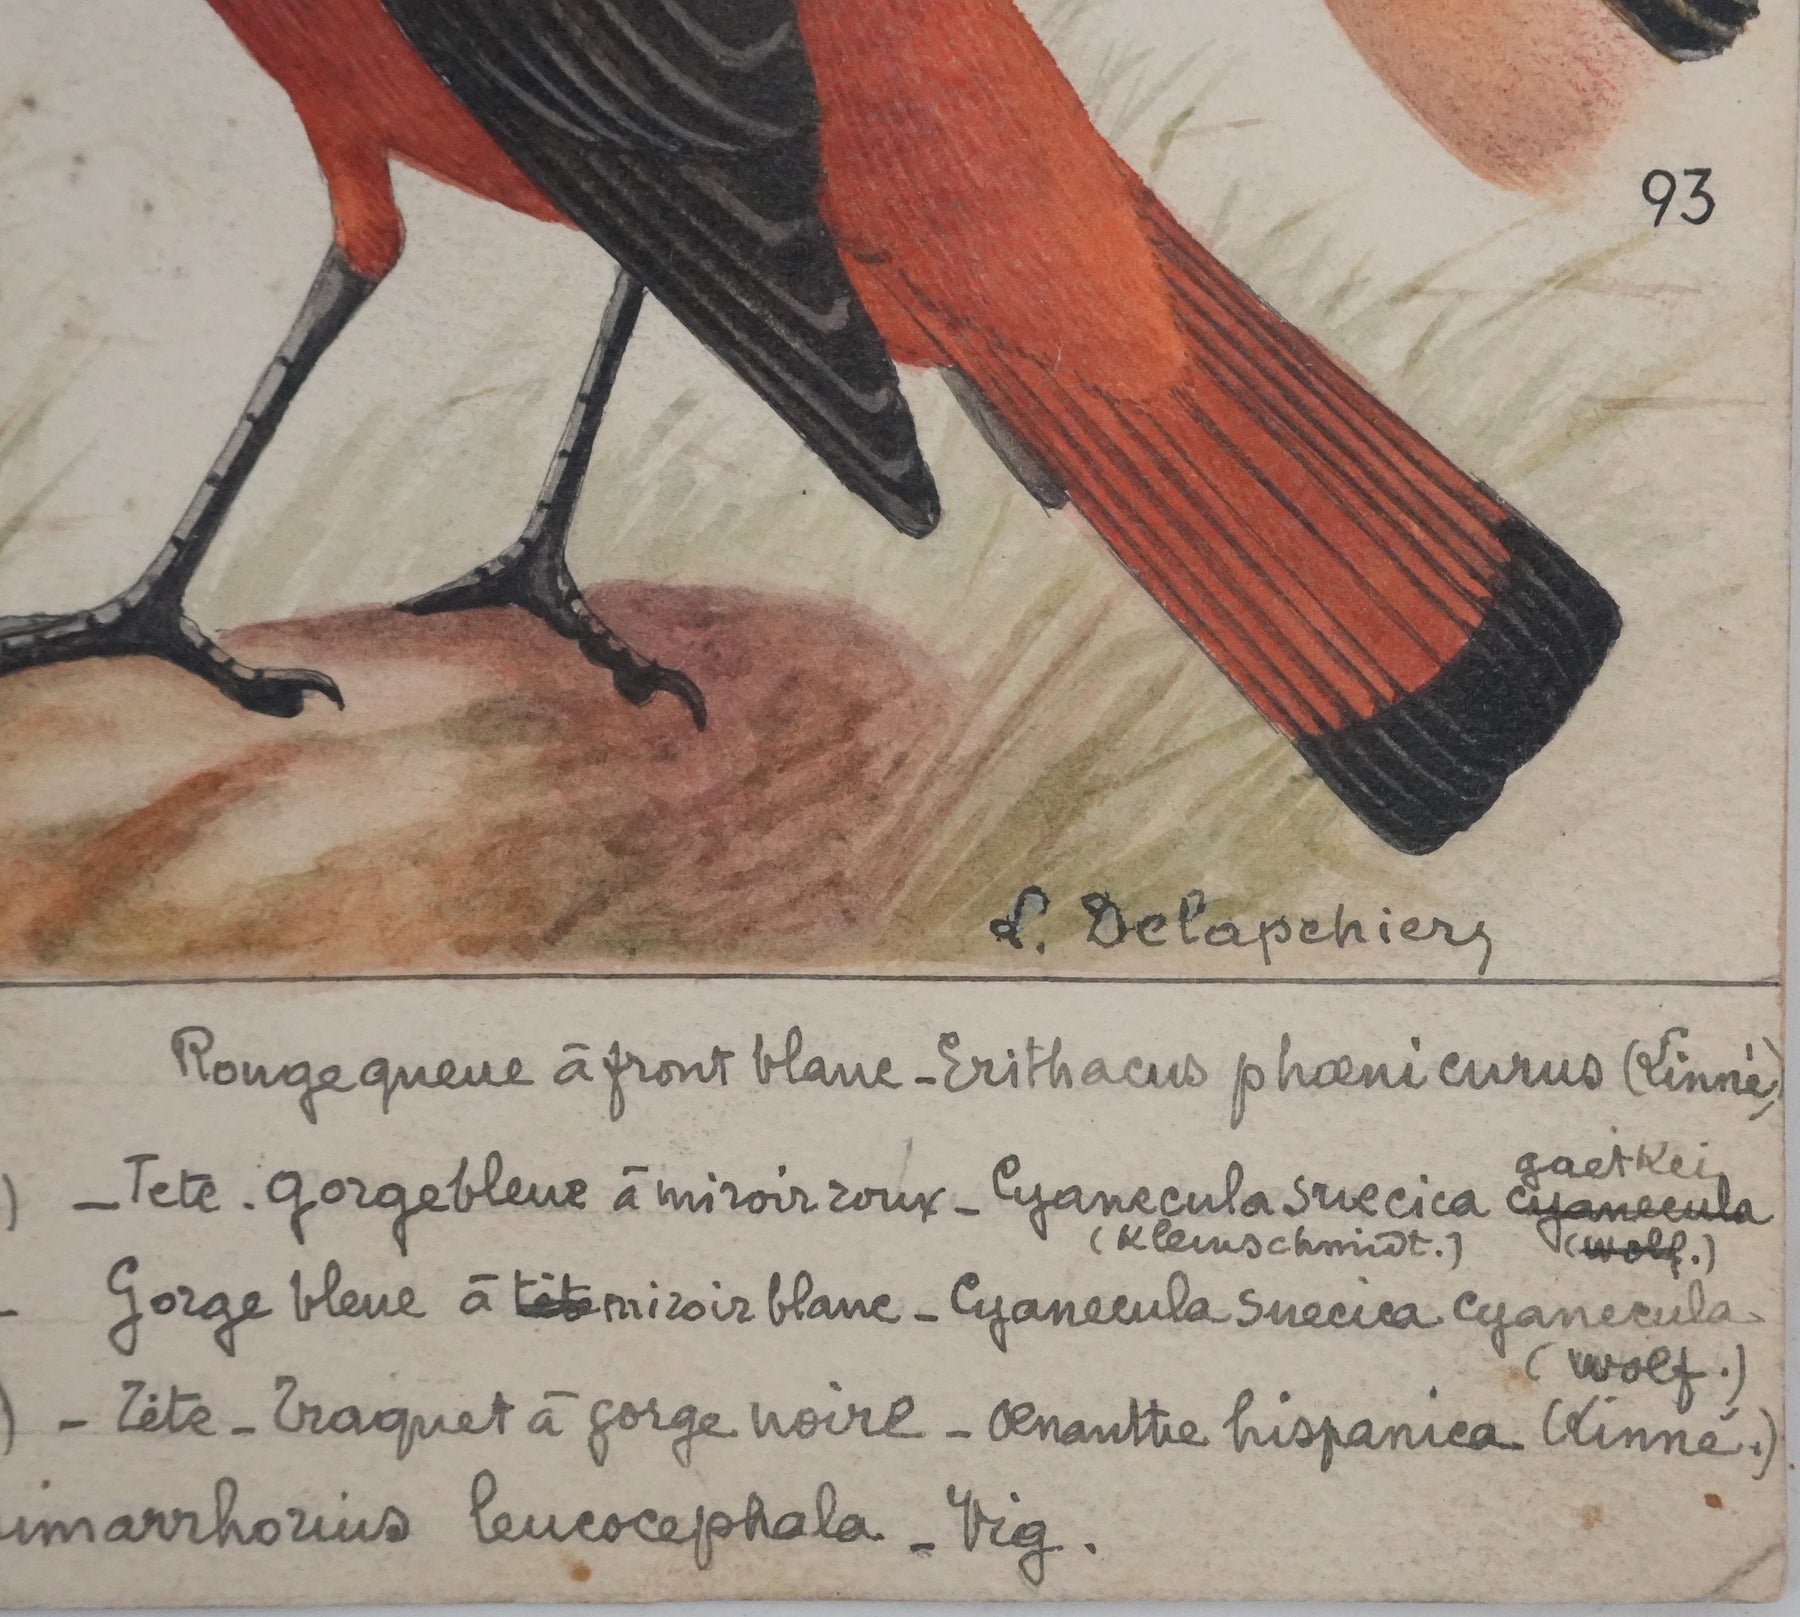 93
L. Delapchier
Rougequeue à front blanc - Erithacus phœnicurus (Linné)
) - Tete - gorgebleue à miroir roux - Cyanecula suecica gaetkei cyanecula
(Kleinschmidt.) (Wolf.)
- Gorge bleue à tête miroir blanc - Cyanecula suecica cyanecula
(Wolf.)
) - Tête - Traquet à gorge noire - Œnanthe hispanica (Linné.)
imarrhornis leucocephala - Vig.